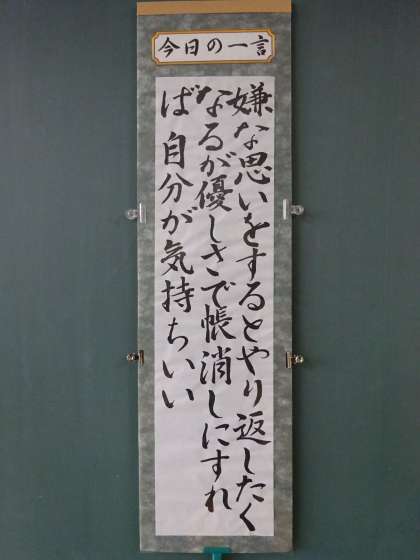 今日の一言
嫌な思いをするとやり返したく
なるが優しさで帳消しにすれ
ば自分が気持ちいい